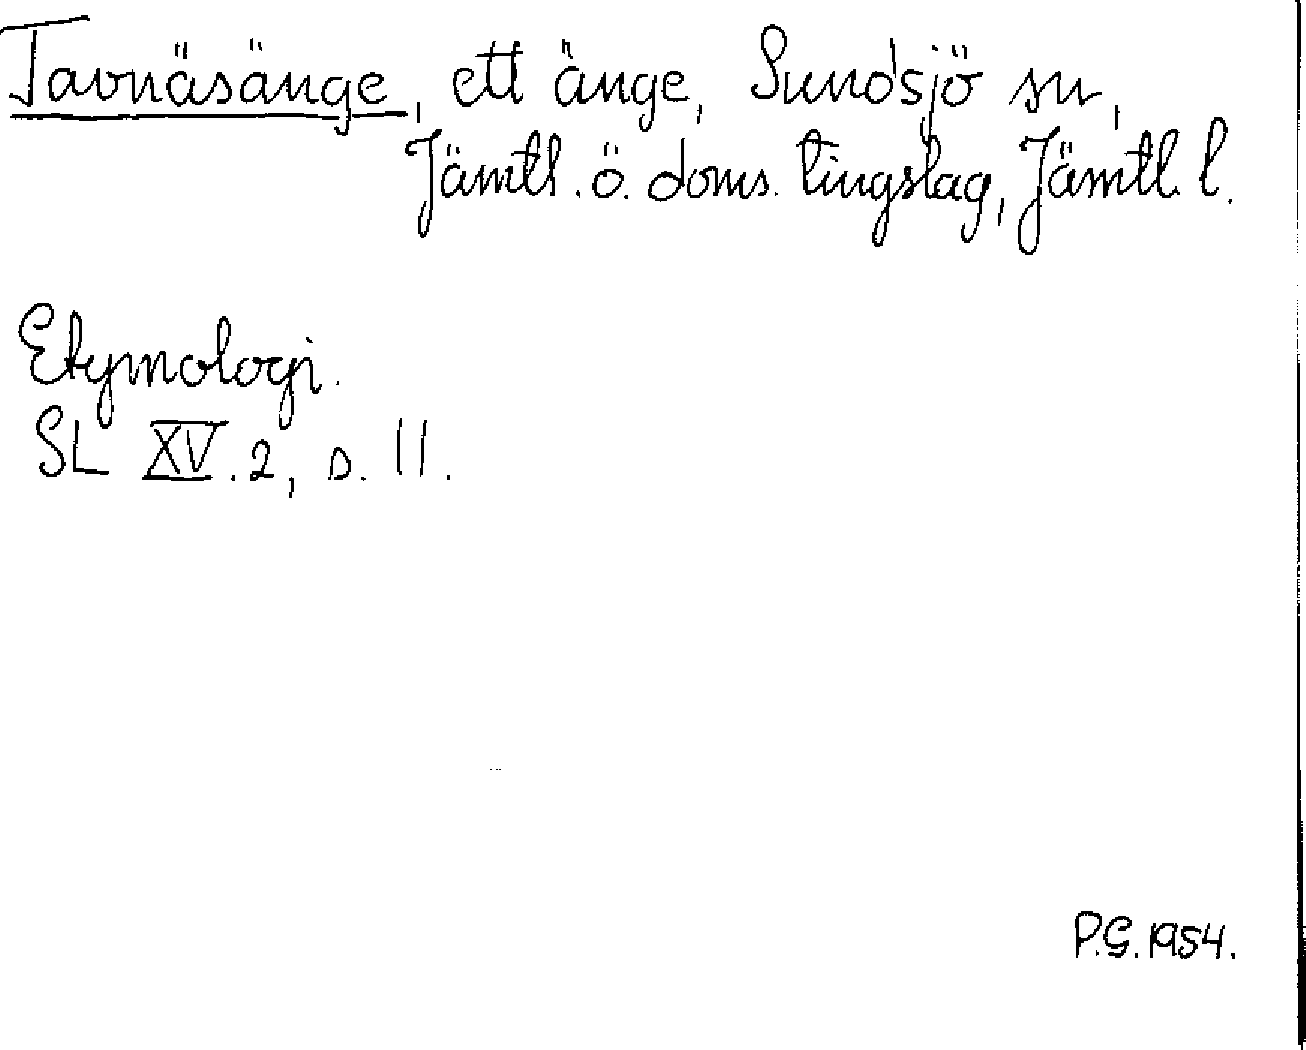 Tavnäsänge, ett änge, Sundsjö sn,
Jämtl. ö. doms. tingslag, Jämtl. l.
Etymologi.
SL XV.2, s. 11.
P.G. 1954.